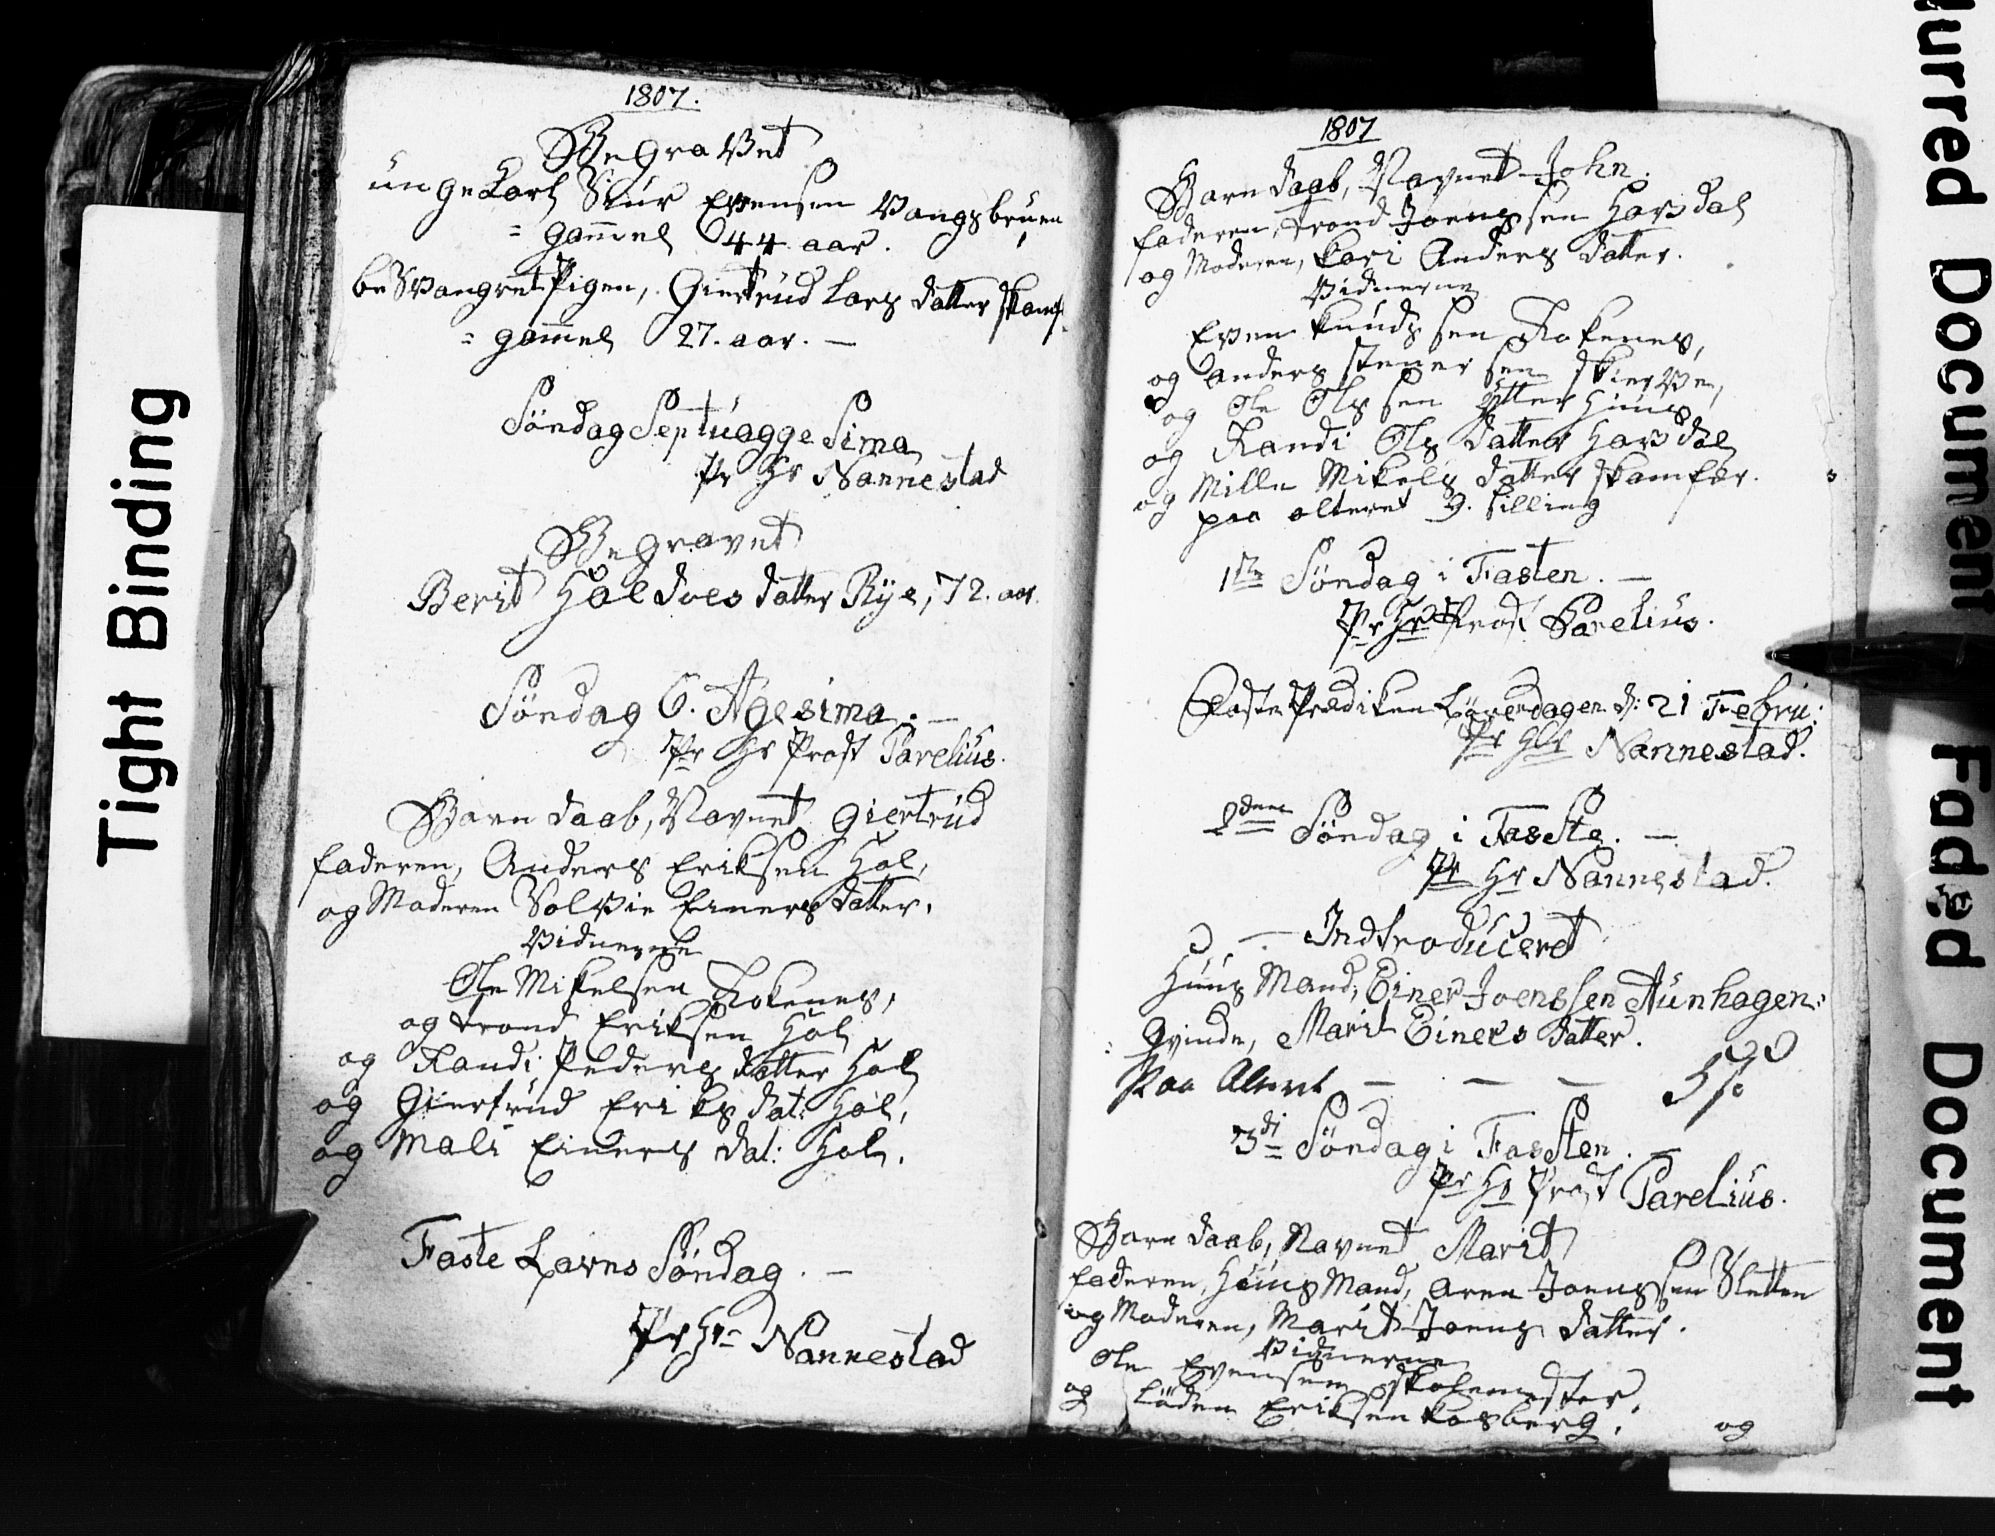 1807.
Begravet
ungeKarl Siur Evensen Vangsbruen
= gam̅el 44 aar.
besvangret Pigen, Giertrud Lars datter skamf:
= gam̅el 27. aar. —
Søndag SeptuaggeSima
Pr Hr Nannestad
Begravet
Berit Haldoes datter Rye, 72. aar.
Søndag 6. Agesima. —
Pr Hr Prost Parelius.
Barn daab, Navnet Giertrud
faderen, Anders Eriksen Hol,
og Moderen Solvie Einers datter.
Vidnerne
Ole Mikelsen Rokenes,
og trond Eriksen Hol
og Randi Peders datter Hol
og Giertrud Eriks dat: Hol,
og Mali Einers dat: Hol.
Faste Lavns Søndag. —
Pr Hr Nannestad
1807
Barn daab, Navnet John.
faderen, trond Joenssen Harsdal
og Moderen, Kari Anders datter.
Vidnerne
Even Knudssen Rokenes,
og anders stener sen skierve,
og Ole Olssen ytterhuus
og Randi Ols datter Harsdal
og Mille Mikels datter skamfer.
paa alteret 9. silling
1ste Søndag i Fasten. —
Pr Hr Prost Parelius.
FastePrediken Løverdagen d: 21 Febru:
Pr Hr Nannestad.
2den Søndag i Faste. —
Pr Hr Nannestad.
— Indtroduceret
Huus Mand, Einer Joenssen Aunhagen:
: Qvinde, Marit Einers datter.
Paa Alteret — — —
3di Søndag i Fasten. —
Pr Hr Prost Parelius.
Barn daab, Navnet Marit
faderen, Huus Mand, aren Joenssen Sletten
og Moderen, Marit Joens datter.
Vidnerne
Ole Evensen skolemester,
og loden Eriksen Kosberg,
og
Tight Binding
Blurred Document
Faded Document